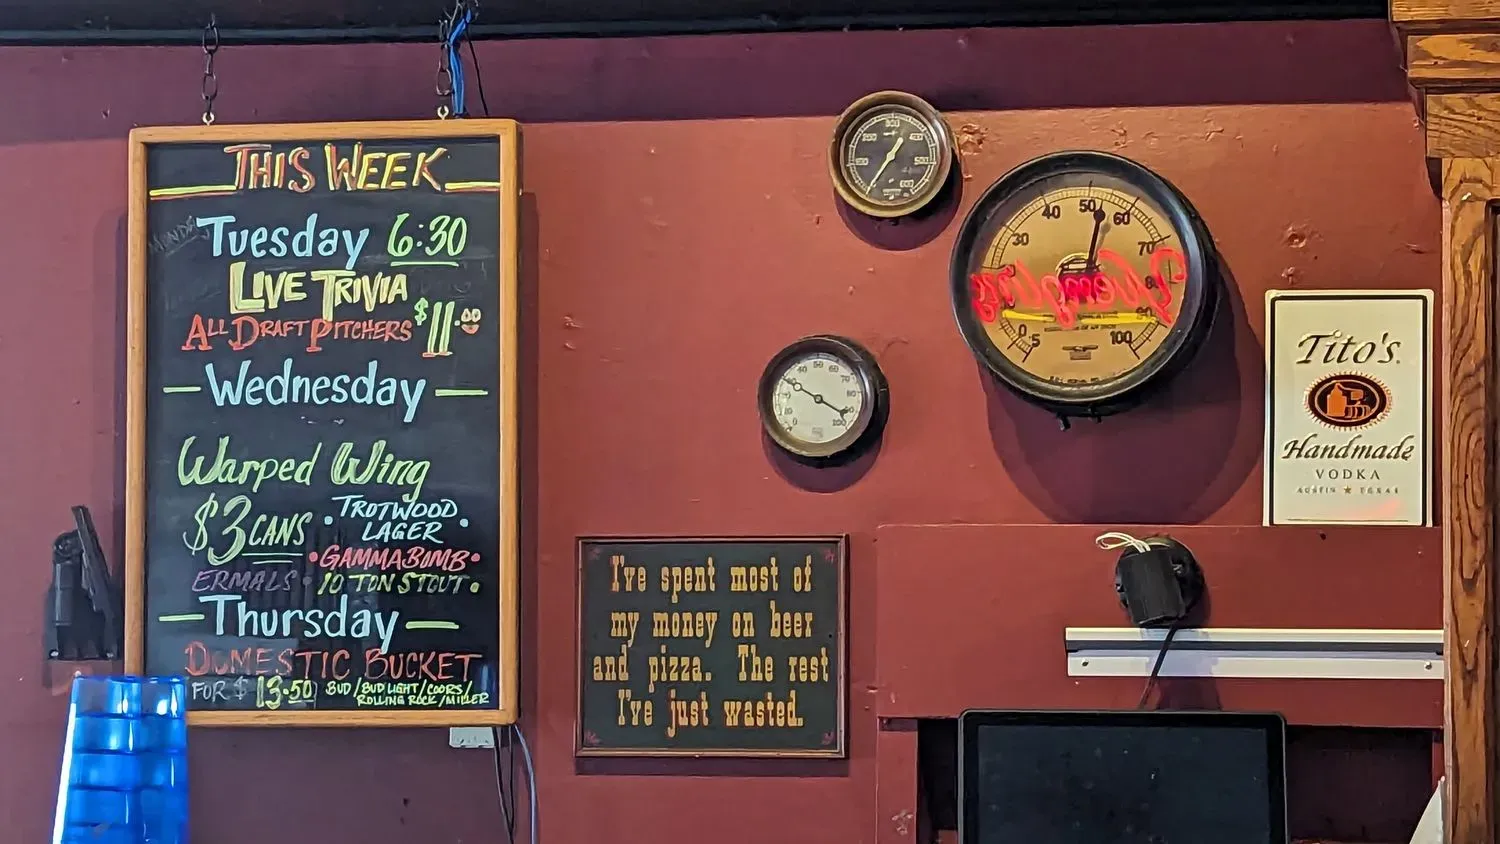 THIS WEEK
Tuesday 6:30
LIVE TRIVIA
ALL DRAFT PITCHERS $11.00
Wednesday
Warped Wing
$3 CANS
• TROTWOOD LAGER •
• GAMMABOMB •
ERMALS • 10 TON STOUT •
Thursday
DOMESTIC BUCKET
FOR $13.50 BUD/BUD LIGHT/COORS/
ROLLING ROCK/MILLER
I've spent most of
my money on beer
and pizza. The rest
I've just wasted.
200 300 400
100 500
600
30 40 50 60 70
5 0 90 100
Yuengling
40 50 60 70
10 0 100
Tito's
Handmade
VODKA
AUSTIN ★ TEXAS